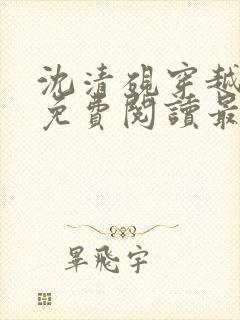 沈清硯穿越
免費閱讀最
畢飛宇